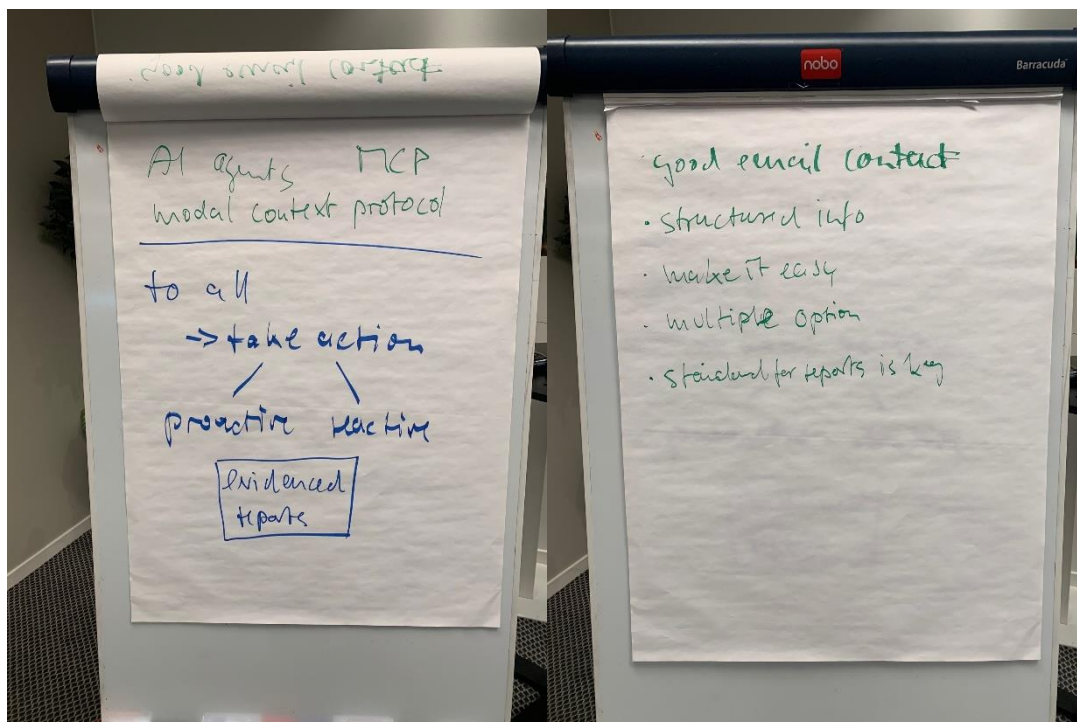 good email contact
AI agents MCP
modal context protocol
to all
-> take action
proactive reactive
evidenced
reports
nobo
Barracuda
good email contact
· structured info
· make it easy
· multiple option
· standard for reports is key